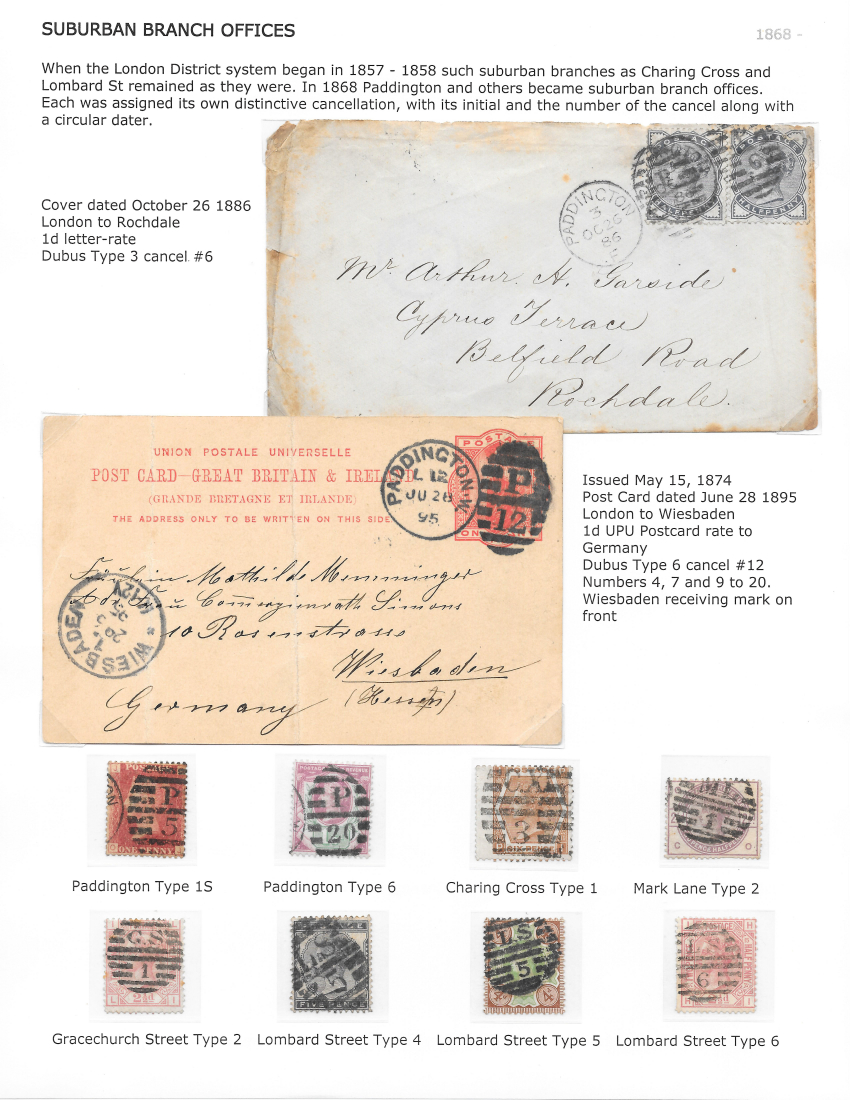 SUBURBAN BRANCH OFFICES
1868 -
When the London District system began in 1857 - 1858 such suburban branches as Charing Cross and
Lombard St remained as they were. In 1868 Paddington and others became suburban branch offices.
Each was assigned its own distinctive cancellation, with its initial and the number of the cancel along with
a circular dater.
Cover dated October 26 1886
London to Rochdale
1d letter-rate
Dubus Type 3 cancel #6
PADDINGTON
3
OC 26
86
POSTAGE
HALFPENNY
Mr Arthur. H. Garside
Cyprus Terrace
Belfield Road
Rochdale.
UNION POSTALE UNIVERSELLE
POST CARD—GREAT BRITAIN & IRELAND
(GRANDE BRETAGNE ET IRLANDE)
THE ADDRESS ONLY TO BE WRITTEN ON THIS SIDE
POSTAGE
PADDINGTON.W
L 12
JU 28
95
P
12
Fräulein Mathilde Memminger
Adr Frau Commerzienrath Simons
10 Rosenstrasse
Wiesbaden
(Hessen)
Germany
WIESBADEN
Issued May 15, 1874
Post Card dated June 28 1895
London to Wiesbaden
1d UPU Postcard rate to
Germany
Dubus Type 6 cancel #12
Numbers 4, 7 and 9 to 20.
Wiesbaden receiving mark on
front
P
5
ONE PENNY
P
20
C.X
3
SIX PENCE
1
Paddington Type 1S
Paddington Type 6
Charing Cross Type 1
Mark Lane Type 2
G.S
1
L 2½d I
FIVE PENCE
L.S
5
L.S
6
Gracechurch Street Type 2
Lombard Street Type 4
Lombard Street Type 5
Lombard Street Type 6